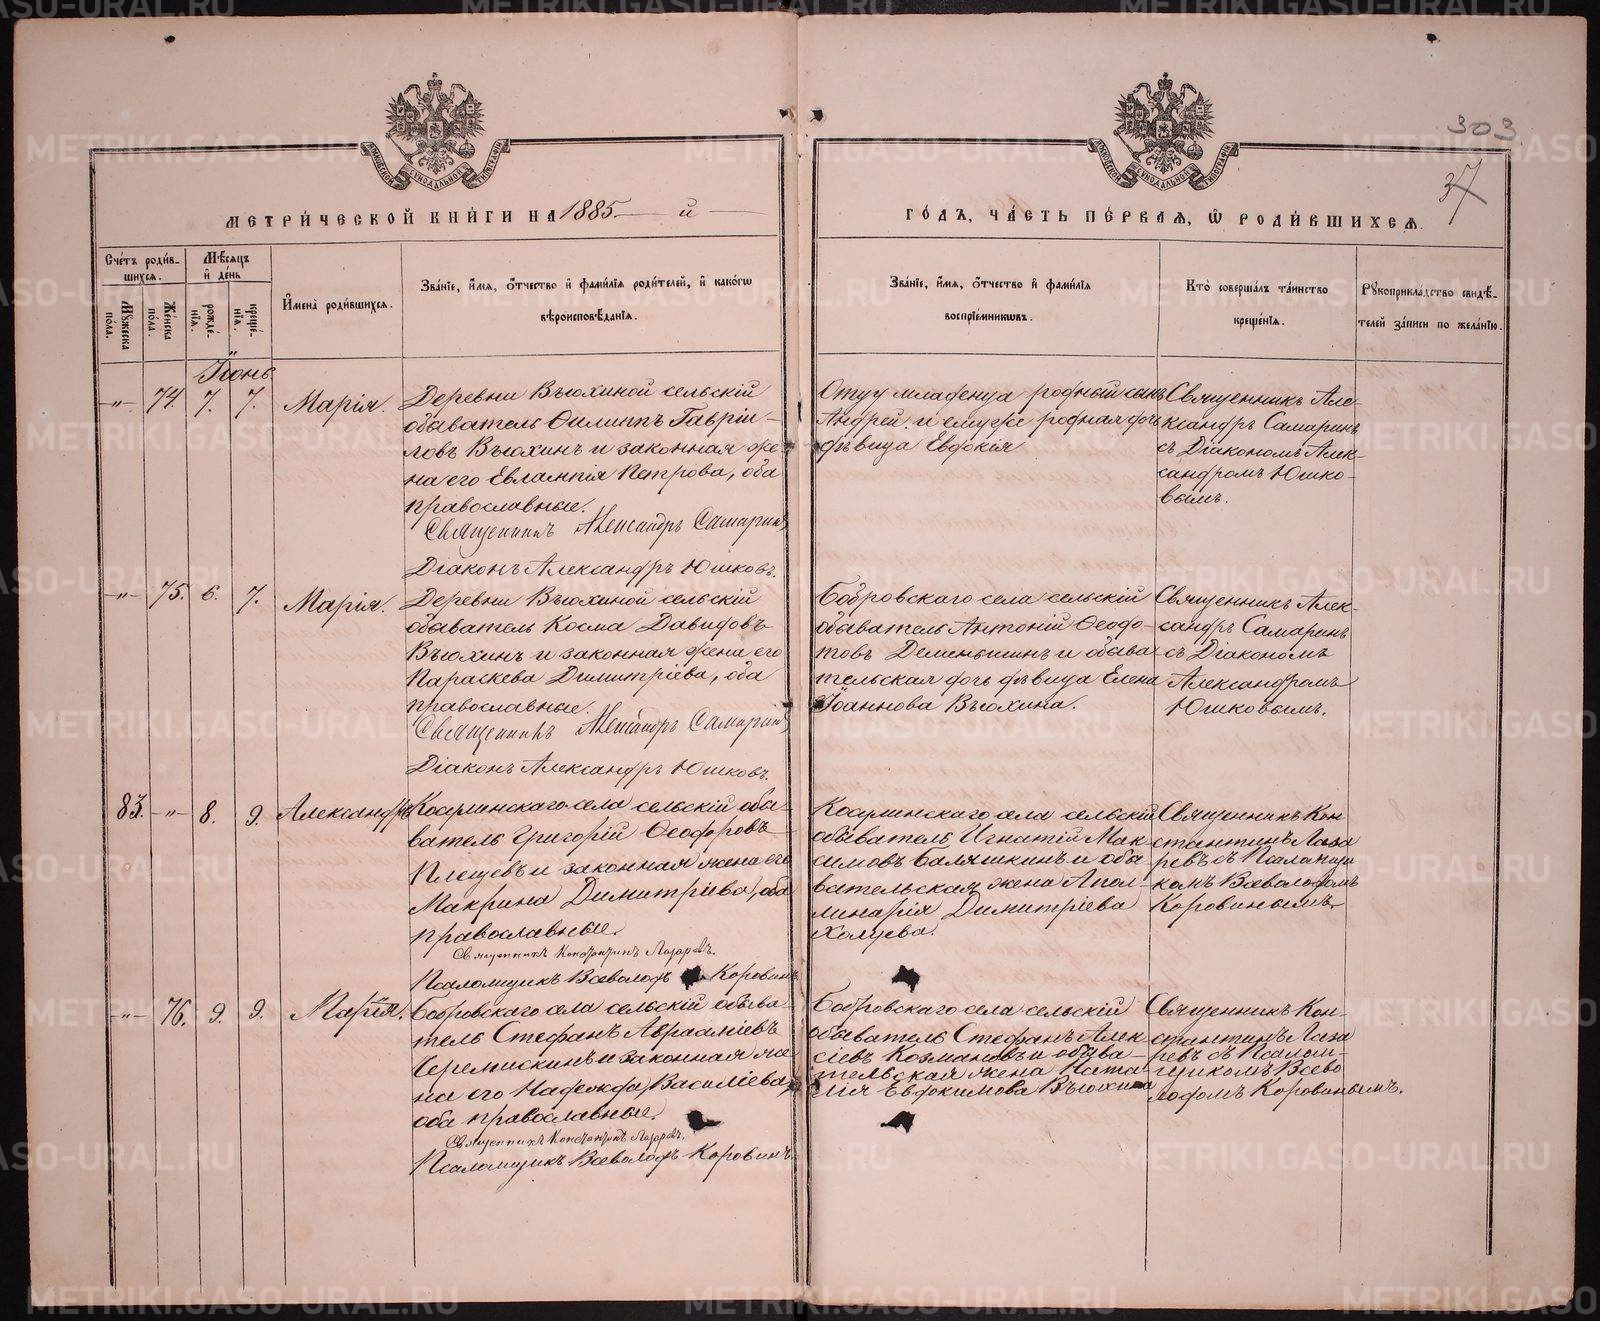 303
37
МЕТРИ́ЧЕСКОЙ КНИ́ГИ НА 1885 й
ГО́ДЪ, ЧА́СТЬ ПЕ́РВАЯ, Ѡ РОДИ́ВШИХСЯ.
Сче́тъ роди́вшихся.
Му́жеска по́ла.
Же́нска по́ла.
Мѣ́сяцъ и де́нь
рожде́нія.
креще́нія.
Имена̀ роди́вшихся.
Зва́ніе, и́мя, о́тчество и фами́лія роди́телей, и како́гѡ
вѣроисповѣ́данія.
Зва́ніе, и́мя, о́тчество и фами́лія
воспріе́мниковъ.
Кто̀ соверша́лъ та́инство
креще́нія.
Рукоприкла́дство свидѣ́-
телей за́писи по жела́нію.
Іюнь.
-"- 74. 7. 7. Марія.
Деревни Вьюхиной сельскій
обыватель Филиппъ Гаврі-
ловъ Вьюхинъ и законная же-
на его Евлампія Петрова, оба
православные.
Священникъ Александръ Самаринъ
Діаконъ Александръ Юшковъ.
Отцу младенца родный сынъ
Андрей, и ему же родная дочь
дѣвица Евдокія
Священникъ Але-
ксандръ Самаринъ
съ Діакономъ Алек-
сандромъ Юшко-
вымъ.
-"- 75. 6. 7. Марія.
Деревни Вьюхиной сельскій
обыватель Косма Давидовъ
Вьюхинъ и законная жена его
Параскева Димитріева, оба
православные.
Священникъ Александръ Самаринъ
Діаконъ Александръ Юшковъ.
Бобровскаго села сельскій
обыватель Антоній Ѳеодо-
товъ Деменьшинъ и обыва
тельская дочь дѣвица Елена
Іоаннова Вьюхина.
Священникъ Алек-
сандръ Самаринъ
съ Діакономъ
Александромъ
Юшковымъ.
83. -"- 8. 9. Александръ
Косулинскаго села сельскій обы-
ватель Григорій Ѳеодоровъ
Плещевъ и законная жена его
Макрина Димитріева, оба
православные.
Священникъ Константинъ Лазаревъ.
Псаломщикъ Всеволодъ Коровинъ
Косулинскаго села сельскій
обыватель Игнатій Мак
симовъ Баляшкинъ и обы
вательская жена Апол-
линарія Димитріева
Холуева.
Священникъ Кон
стантинъ Лаза
ревъ съ Псаломщи
комъ Всеволодомъ
Коровинымъ.
-"- 76. 9. 9. Марія.
Бобровскаго села сельскій обыва-
тель Стефанъ Авраамиевъ
Черемискинъ и законная же
на его Надежда Василіева,
оба православные.
Священникъ Константинъ Лазаревъ.
Псаломщикъ Всеволодъ Коровинъ
Бобровскаго села сельскій
обыватель Стефанъ Алек
сіевъ Козмановъ и обыва-
тельская жена Ната
лія Евдокимова Вьюхина
Священникъ Кон-
стантинъ Лаза
ревъ съ Псалом-
щикомъ Всево
лодомъ Коровинымъ.
METRIKI.GASO-URAL.RU